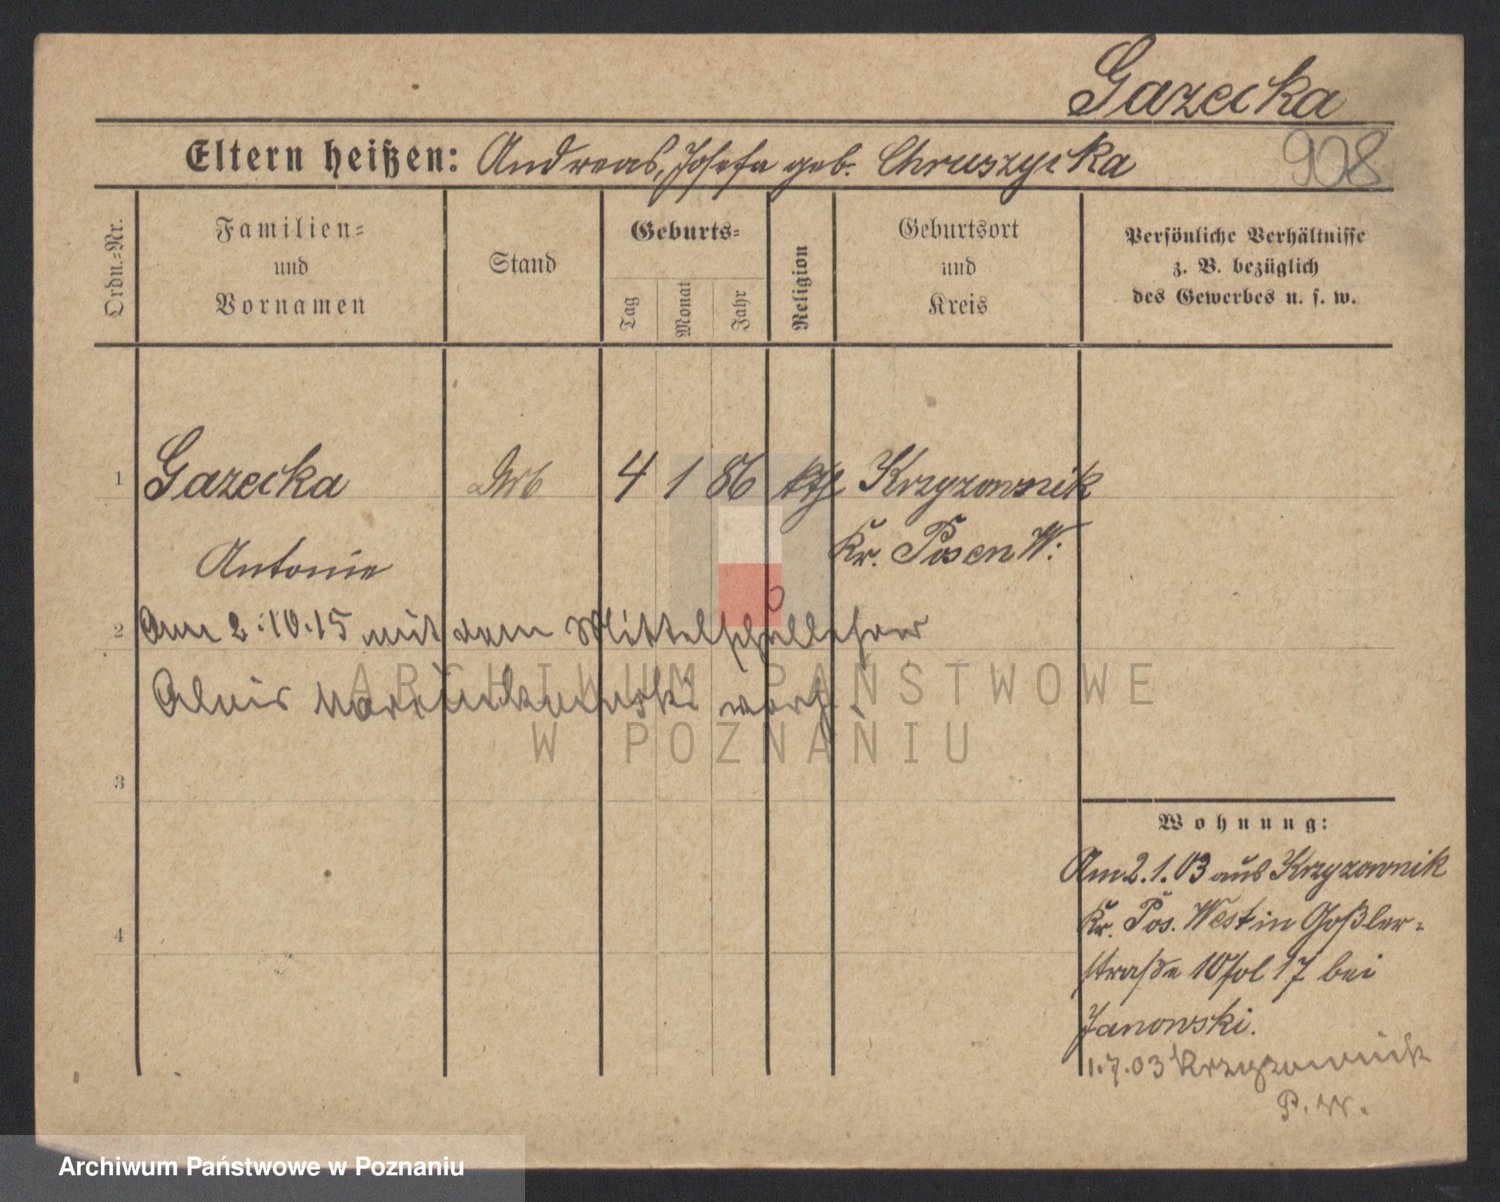 Gazecka
Eltern heißen: Andreas, Josefa geb. Chruszycka
908
Ordn.-Nr.
Familien-
und
Vornamen
Stand
Geburts-
Tag
Monat
Jahr
Religion
Geburtsort
und
Kreis
Persönliche Verhältnisse
z. B. bezüglich
des Gewerbes u. s. w.
1 Gazecka Arb 4 1 86 kth Krzyzownik
Antonie Kr. Posen W.
2 Am 2.10.15 mit dem Mittelschullehrer
Alois verh.
ARCHIWUM PAŃSTWOWE
W POZNANIU
3
4
Wohnung:
Am 2.1.03 aus Krzyzownik
Kr. Pos. West in Goßler-
straße 10 fol 17 bei
Janowski.
1.7.03 Krzyzownik
P. W.
Archiwum Państwowe w Poznaniu